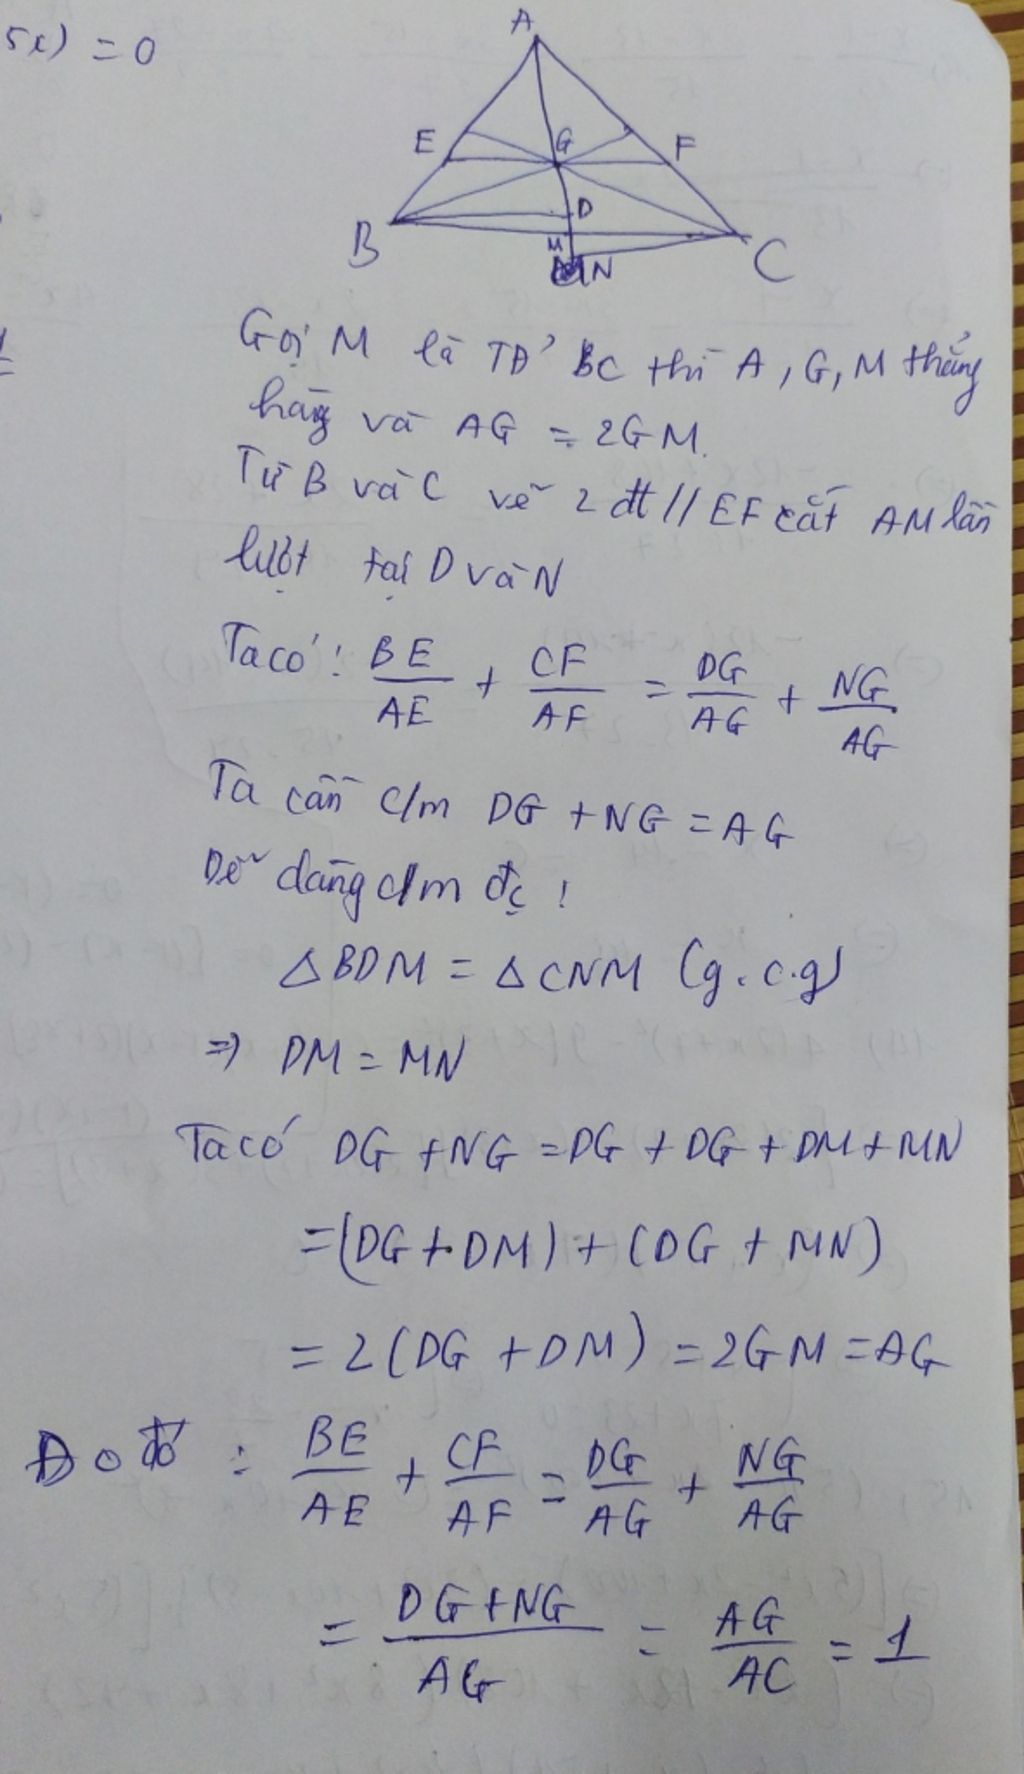 5x) = 0
A
E
G
F
D
B
M
N
C
Gọi M là TĐ' BC thì A, G, M thẳng
hàng và AG = 2GM.
Từ B và C vẽ 2 đt // EF cắt AM lần
lượt tại D và N
Ta có: BE/AE + CF/AF = DG/AG + NG/AG
Ta cần c/m DG + NG = AG
Dễ dàng c/m đc:
△BDM = △CNM (g.c.g)
=> DM = MN
Ta có DG + NG = DG + DG + DM + MN
= (DG + DM) + (DG + MN)
= 2(DG + DM) = 2GM = AG
Do đó: BE/AE + CF/AF = DG/AG + NG/AG
= DG + NG/AG = AG/AC = 1